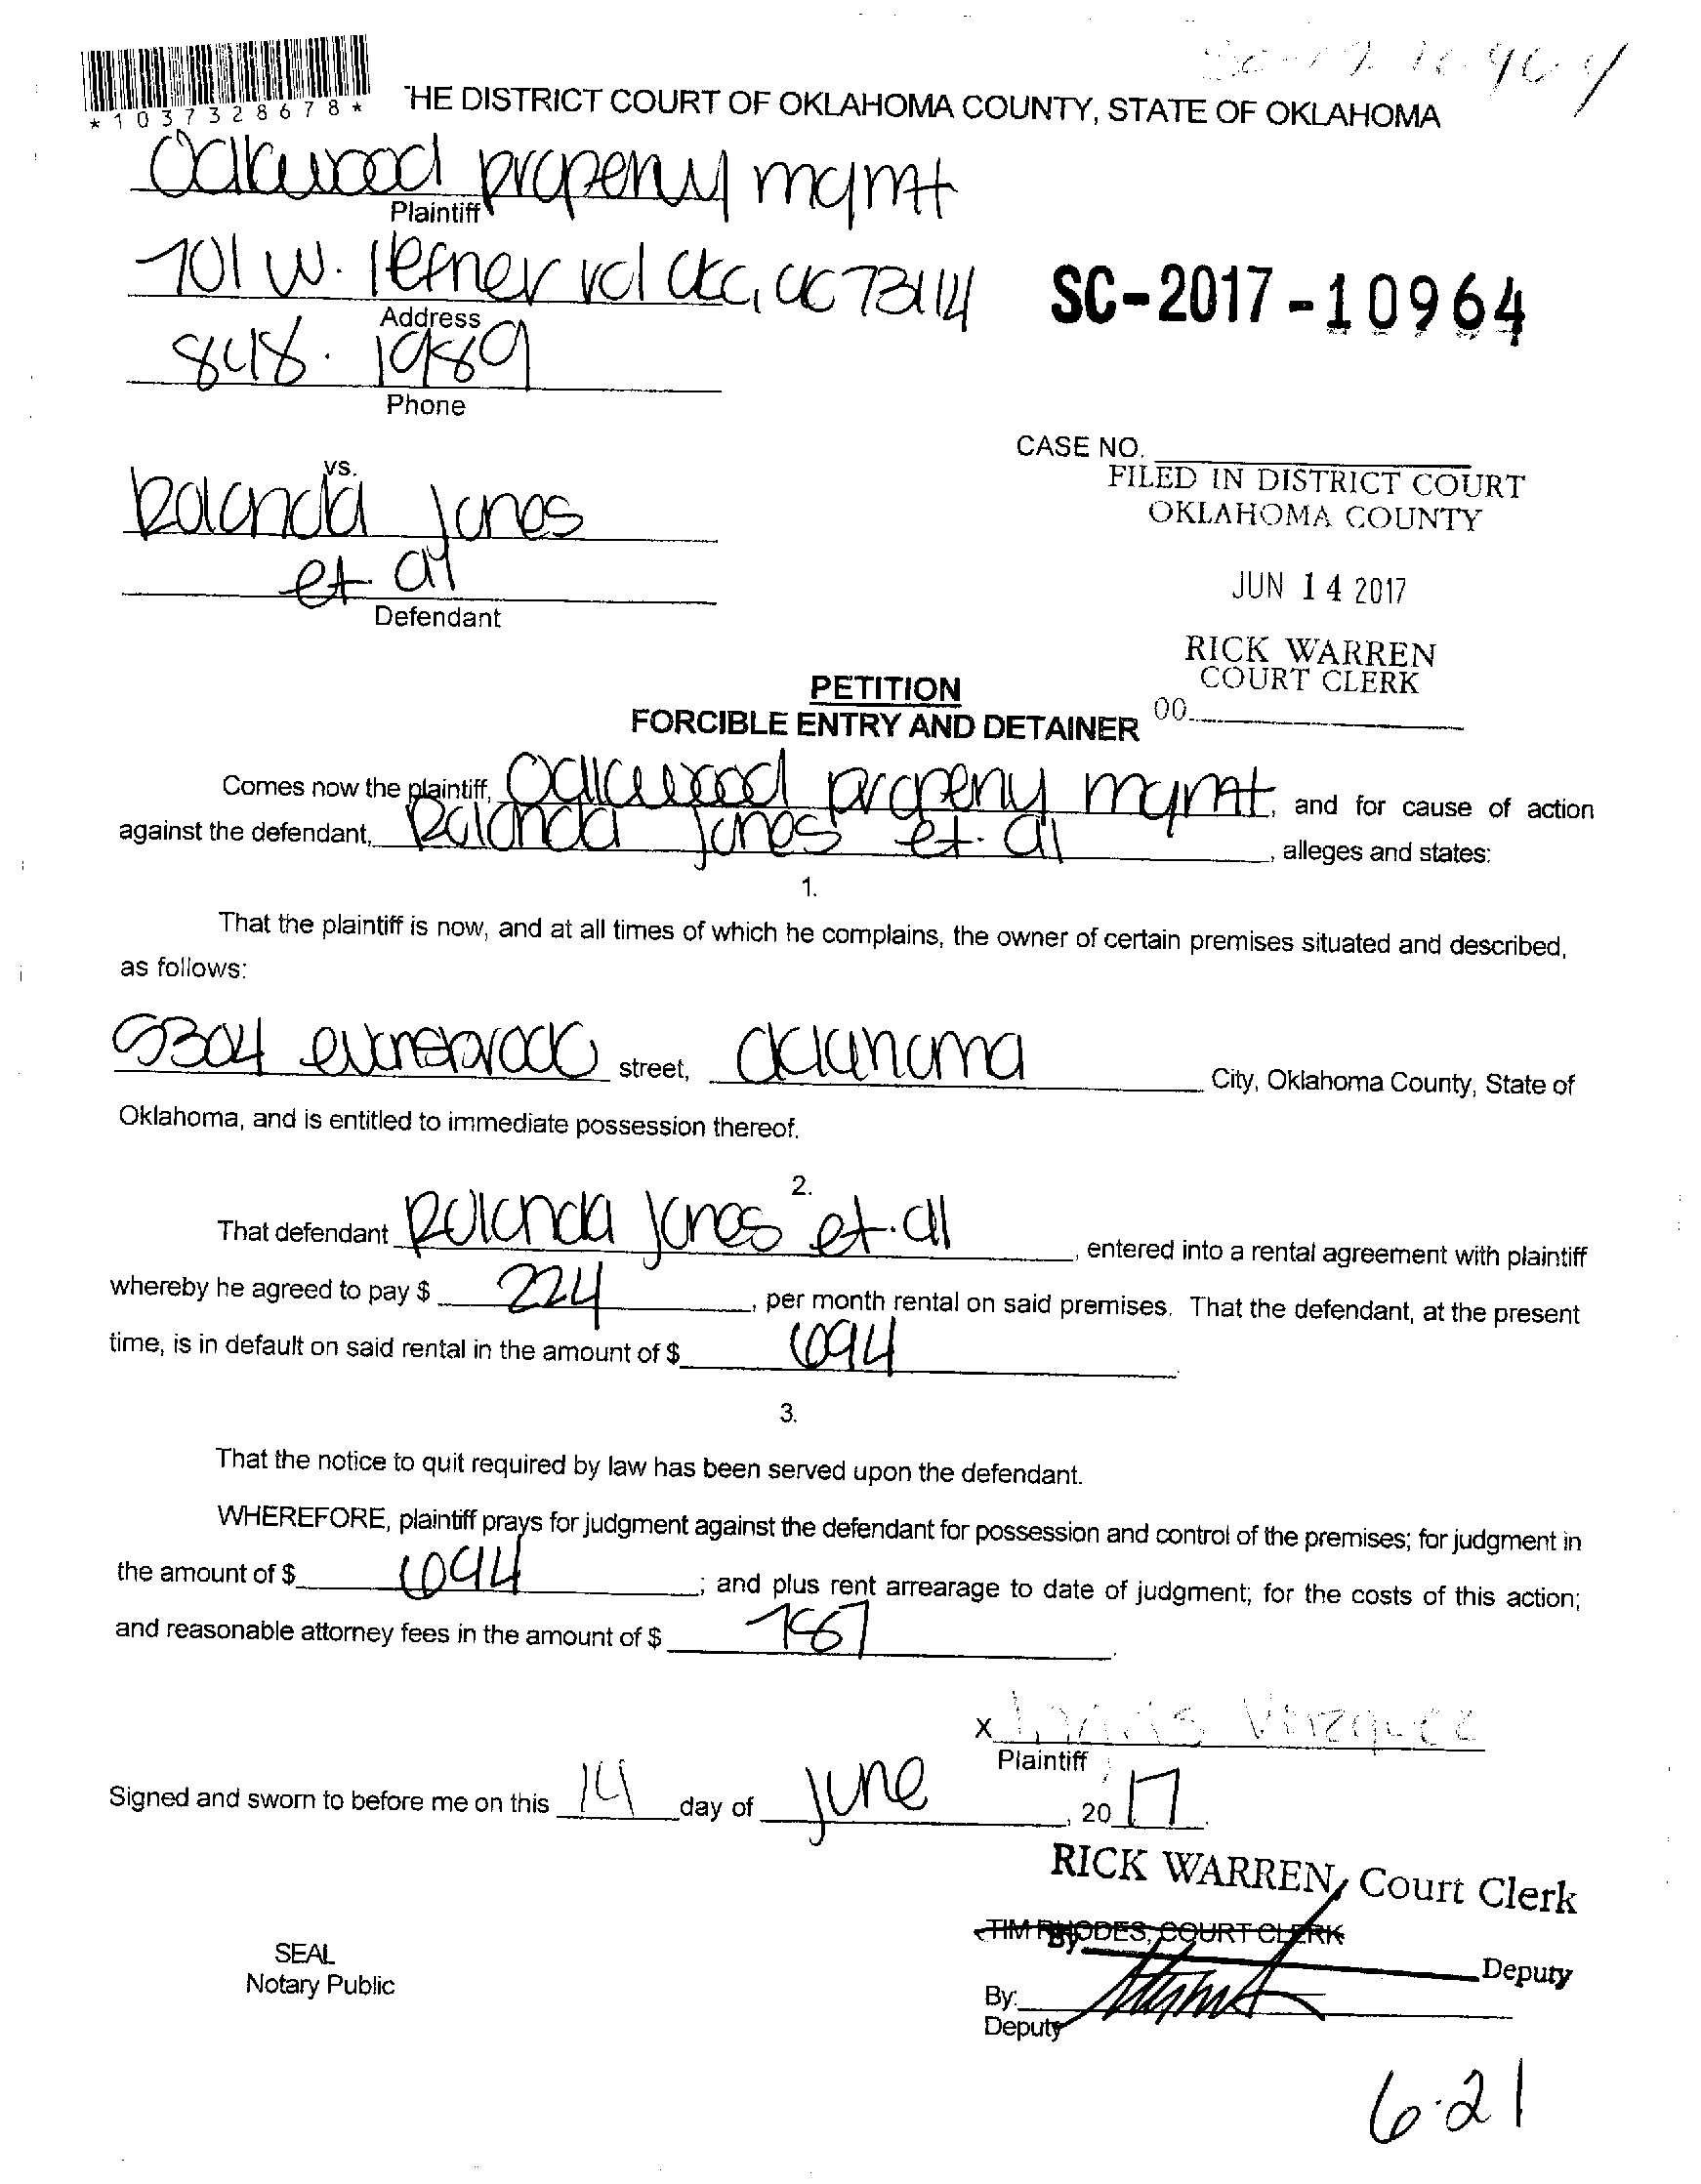 *1037328678*
THE DISTRICT COURT OF OKLAHOMA COUNTY, STATE OF OKLAHOMA
Oakwood property mgmt
Plaintiff
701 W. Hefner rd OKC, OK 73114
SC-2017-10964
Address
848.1989
Phone
CASE NO.
FILED IN DISTRICT COURT
OKLAHOMA COUNTY
vs.
Rolanda Jones
et al
Defendant
JUN 14 2017
RICK WARREN
COURT CLERK
00
PETITION
FORCIBLE ENTRY AND DETAINER
Comes now the plaintiff, Oakwood property mgmt, and for cause of action
against the defendant, Rolanda Jones et. al, alleges and states:
1.
That the plaintiff is now, and at all times of which he complains, the owner of certain premises situated and described,
as follows:
5304 street, Oklahoma City, Oklahoma County, State of
Oklahoma, and is entitled to immediate possession thereof.
2.
That defendant Rolanda Jones et. al, entered into a rental agreement with plaintiff
whereby he agreed to pay $ 224, per month rental on said premises. That the defendant, at the present
time, is in default on said rental in the amount of $ 694
3.
That the notice to quit required by law has been served upon the defendant.
WHEREFORE, plaintiff prays for judgment against the defendant for possession and control of the premises; for judgment in
the amount of $ 694; and plus rent arrearage to date of judgment; for the costs of this action;
and reasonable attorney fees in the amount of $
X Vazquez
Plaintiff
Signed and sworn to before me on this 14 day of June, 2017.
RICK WARREN, Court Clerk
TIM RHODES, COURT CLERK
By Deputy
SEAL
Notary Public
By:
Deputy
6.21